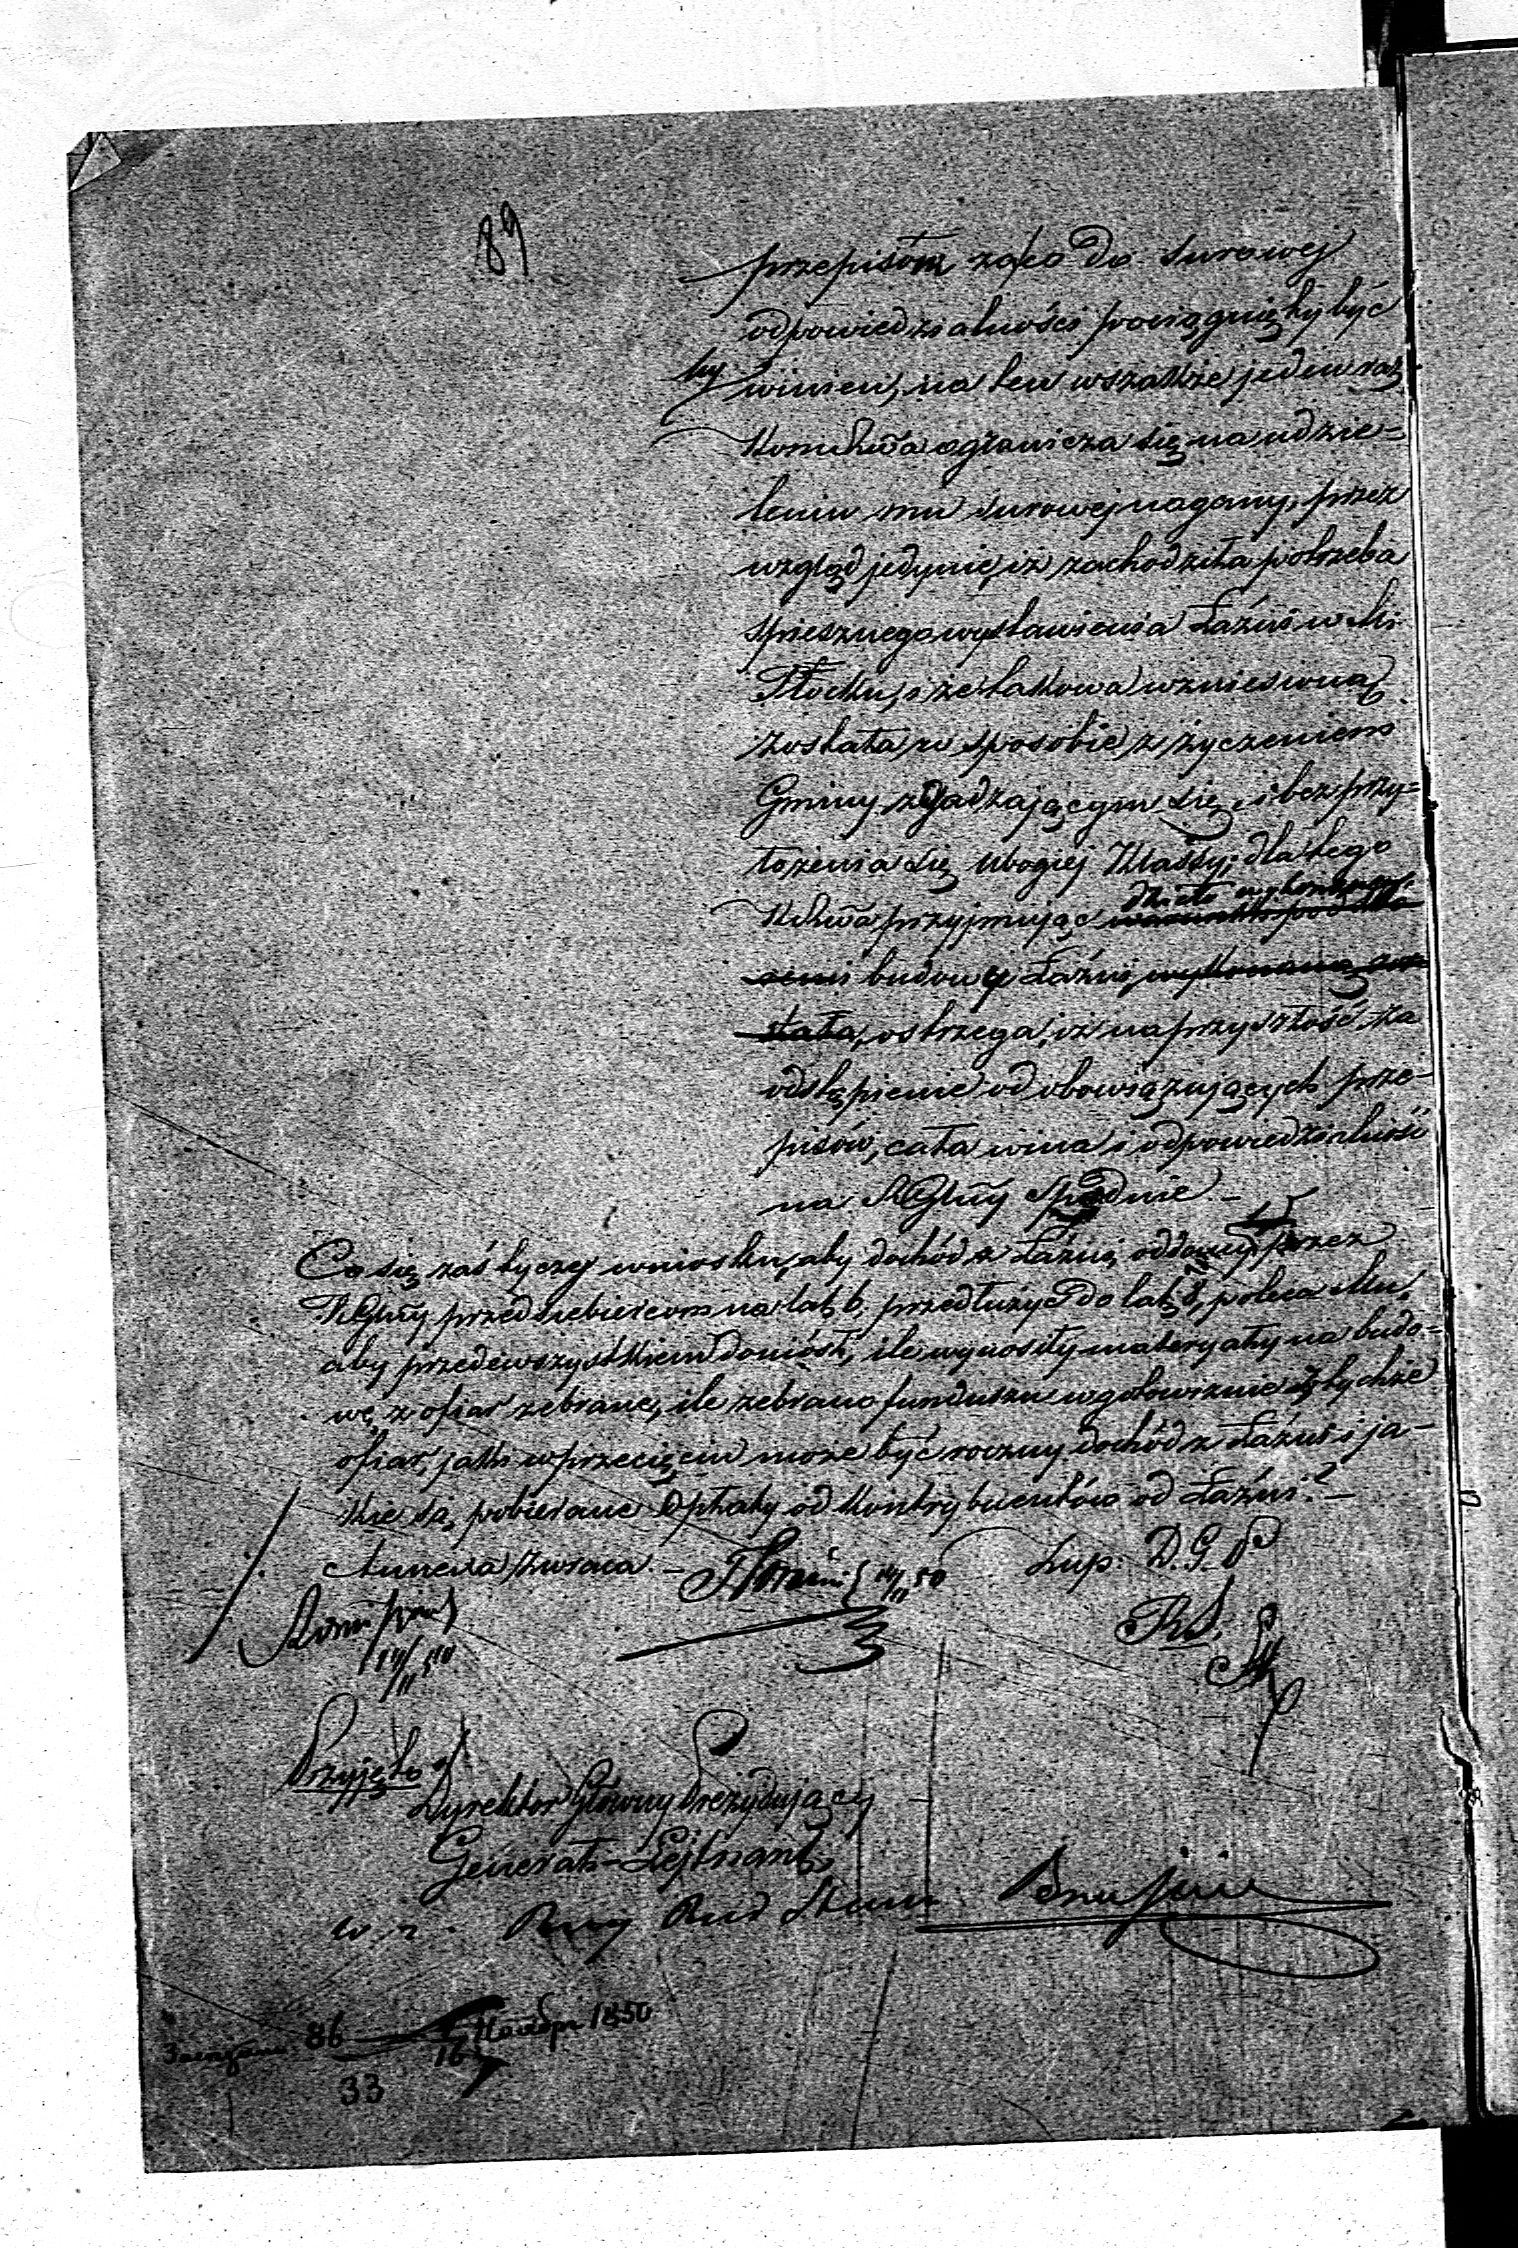 89
przepisom, za co do surowej
odpowiedzialności pociągnięty być
by winien, na ten wszakże jeden raz
Kom. Rwa ogranicza się na udzie=
leniu mu surowej nagany, przez
wzgląd jedynie, iż zachodziła potrzeba
spiesznego wystawienia Łaźni w Mi:
Płocku, i że takowa wzniesioną
została w sposobie z życzeniem
Gminy zgadzającym się, i bez przy=
łożenia się ubogiej Klassy; dla tego
dzieło wykonanej
KRwa przyjmując
budowy Łaźni,
stała, ostrzega, iż na przyszłość za
odstąpienie od obowiązujących prze-
pisów, cała wina i odpowiedzialność
na RGlny spadnie –
Co się zaś tyczy wniosku, aby dochód z Łaźni, oddany przez
RGlny przedsiebiercom na lat 6, przedłużyć do lat 8, poleca Mu,
aby przedewszystkiem doniósł, ile wynosiły materyały na budo=
wę z ofiar zebrane, ile zebrano funduszu w gotowiznie z tychże
ofiar, jaki w przecięciu może być roczny dochód z Łaźni i ja-
kie są pobierane opłaty od kontrybuentów od Łaźni? –
Annexa zwraca. –
14/11 50
D. G.
14/11 50
Przyjęto
Dyrektor Główny Prezydujący
Generał-Lejtnant
w. z.
86 4/16 Ноября 1850
33